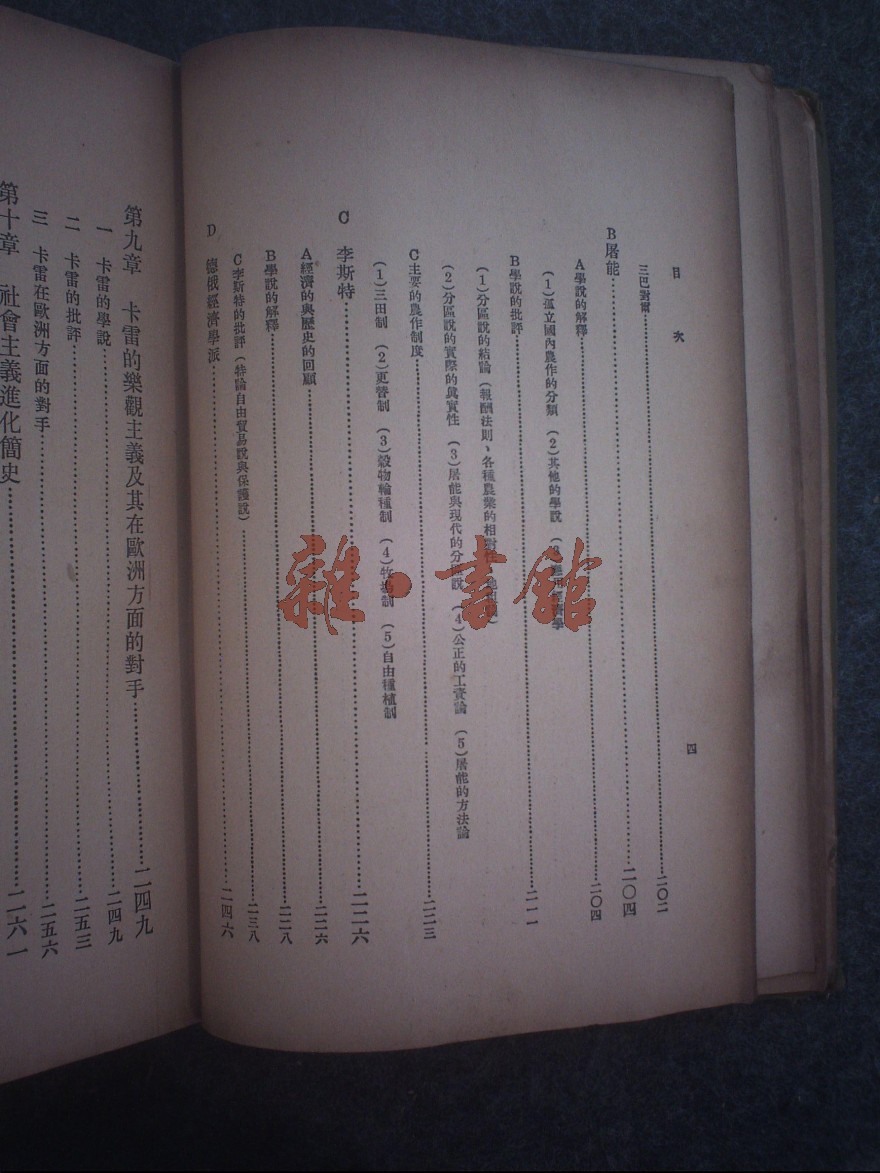 目次
四
三巴對雷……二〇二
B屠能……二〇四
A學說的解釋……二〇四
(1)孤立國內農作的分類 (2)其他的學說
B學說的批評……二一一
(1)分區說的結論(報酬法則、各種農業的相對性
(2)分區說的實際的真實性 (3)屠能與現代的分區說 (4)公正的工資論 (5)屠能的方法論
C主要的農作制度……二二三
(1)三田制 (2)更替制 (3)穀物輪種制 (4)牧場制 (5)自由種植制
C 李斯特……二二六
A經濟的與歷史的回顧……二二六
B學說的解釋……二二八
C李斯特的批評(特論自由貿易說與保護說)……二三八
D 德俄經濟學派……二四六
第九章 卡雷的樂觀主義及其在歐洲方面的對手……二四九
一 卡雷的學說……二四九
二 卡雷的批評……二五三
三 卡雷在歐洲方面的對手……二五六
第十章 社會主義進化簡史……二六一
雜·書館